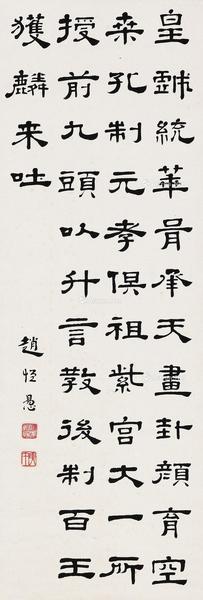 皇戲統華胥承天畫卦顏育空
桒孔制元孝俱祖紫宮大一所
授前九頭以升言教後制百王
獲麟来吐
趙恒惖